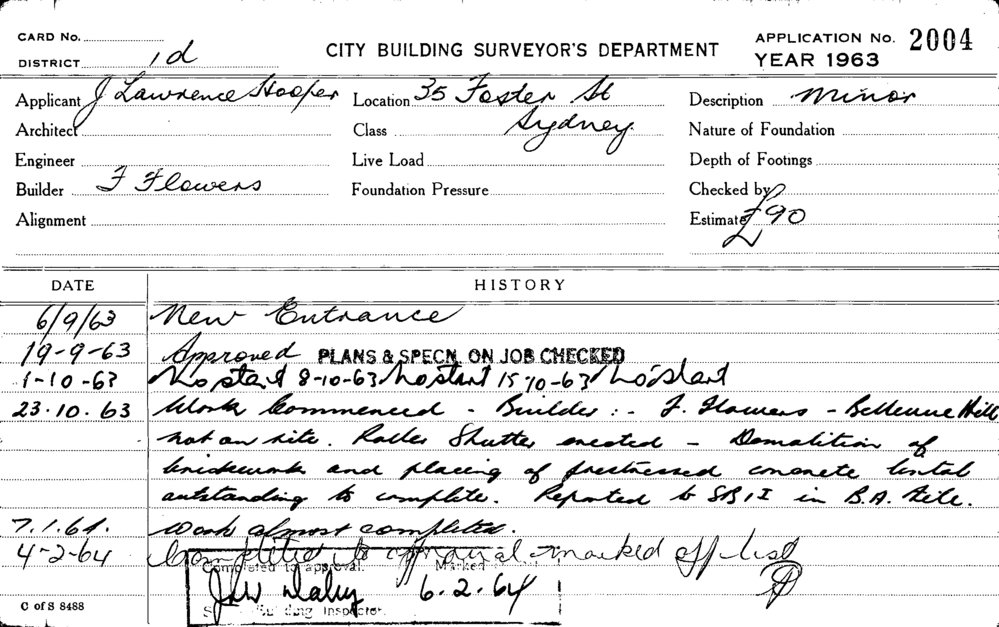 CARD No.
DISTRICT 1d
CITY BUILDING SURVEYOR'S DEPARTMENT
APPLICATION No. 2004
YEAR 1963
Applicant J Lawrence Hooper Location 35 Foster St Description Minor
Architect Class Sydney. Nature of Foundation
Engineer Live Load Depth of Footings
Builder F Flowers Foundation Pressure Checked by
Alignment Estimate £90
DATE HISTORY
6/9/63 New Entrance
19-9-63 Approved PLANS & SPECN. ON JOB CHECKED
1-10-63 No start 8-10-63 No start 15-10-63 No start
23.10.63 Work Commenced - Builder :- F. Flowers - Bellevue Hill
not on site. Roller Shutter erected - Demolition of
brickwork and placing of prestressed concrete lintol
outstanding to complete. Reported to SBI in B.A. file.
7.1.64. Work almost completed.
4-2-64 Completed to approval marked off list
Completed to approval. Marked
6.2.64
Building Inspector.
C of S 8488